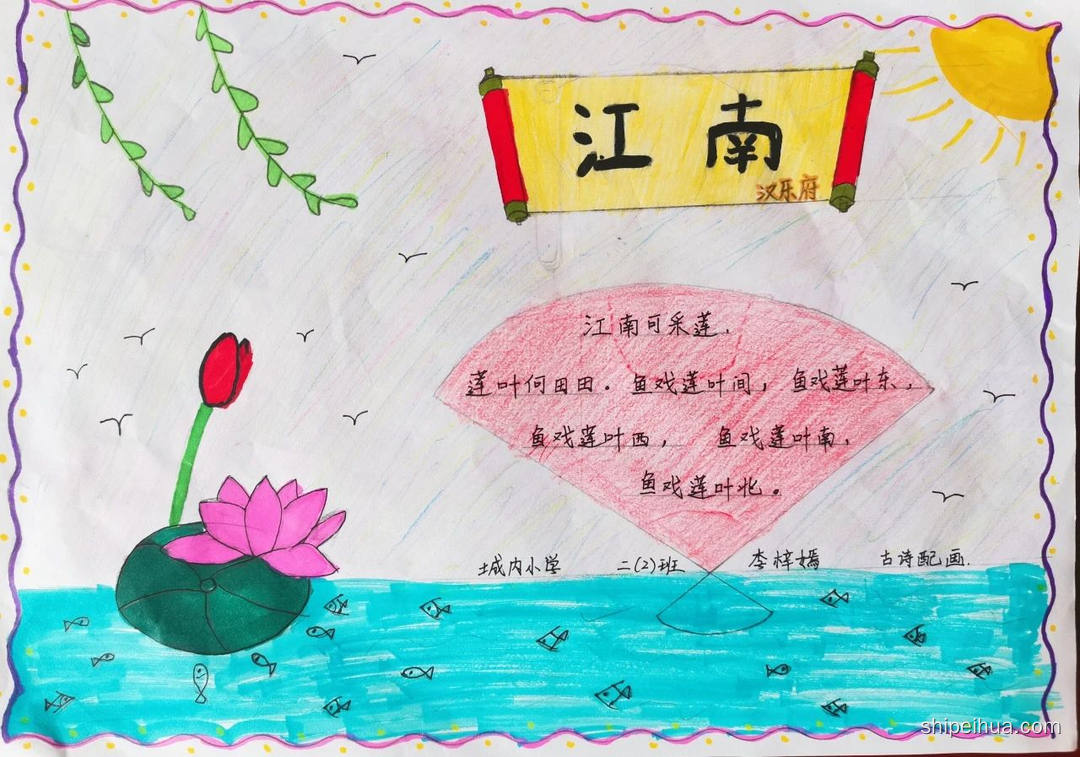 江南
汉乐府
江南可采莲，
莲叶何田田。鱼戏莲叶间，鱼戏莲叶东，
鱼戏莲叶西，鱼戏莲叶南，
鱼戏莲叶北。
城内小学 二(2)班 李梓嫣 古诗配画.
shipeihua.com